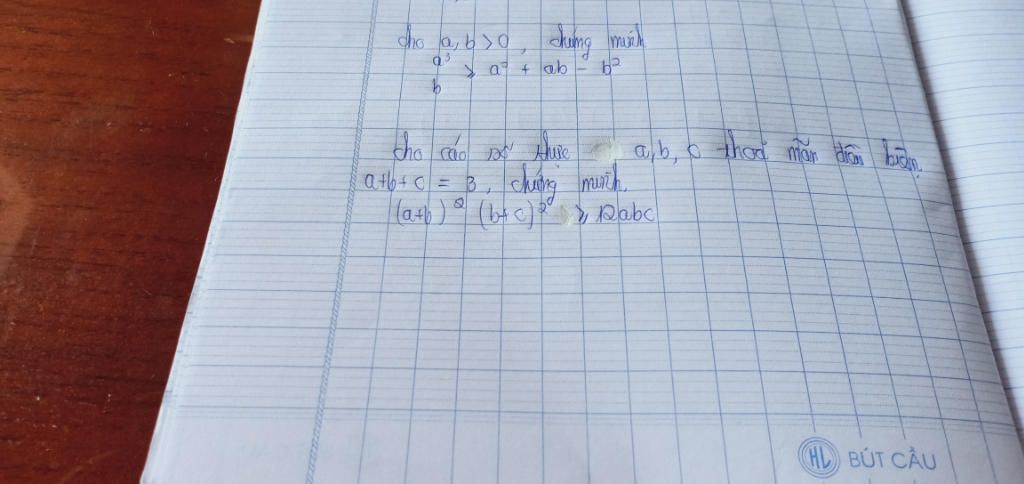 cho a, b > 0, chứng minh
a³
b ≥ a² + ab - b²
cho các số thực a, b, c thoả mãn điều kiện
a+b+c = 3, chứng minh.
(a+b)² (b+c)² ≥ 12abc
HL BÚT CẦU